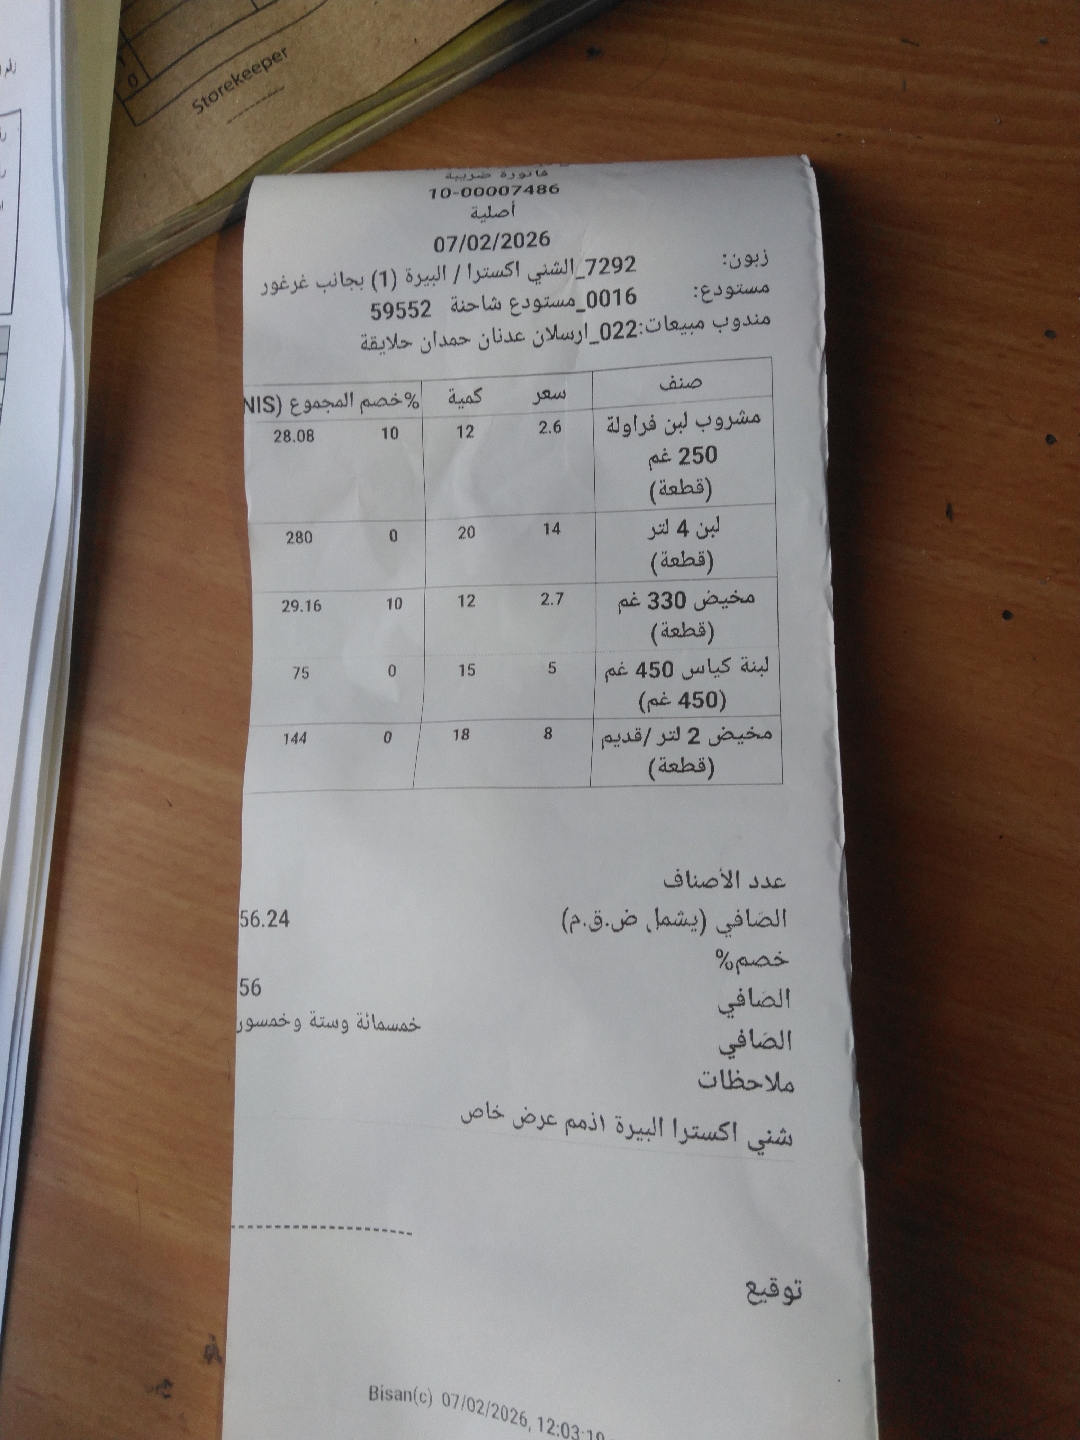 Storekeeper
فاتورة ضريبة
10-00007486
أصلية
07/02/2026
زبون: 7292_الشني اكسترا / البيرة (1) بجانب غرغور
مستودع: 0016_مستودع شاحنة 59552
مندوب مبيعات:022_ارسلان عدنان حمدان حلايقة
صنف سعر كمية %خصم المجموع (NIS
مشروب لبن فراولة 2.6 12 10 28.08
250 غم
(قطعة)
لبن 4 لتر 14 20 0 280
(قطعة)
مخيض 330 غم 2.7 12 10 29.16
(قطعة)
لبنة كياس 450 غم 5 15 0 75
(450 غم)
مخيض 2 لتر /قديم 8 18 0 144
(قطعة)
عدد الأصناف
الصافي (يشمل ض.ق.م) 56.24
خصم%
الصافي 56
الصافي خمسمائة وستة وخمسور
ملاحظات
شني اكسترا البيرة اذمم عرض خاص
توقيع
Bisan(c) 07/02/2026, 12:03:19